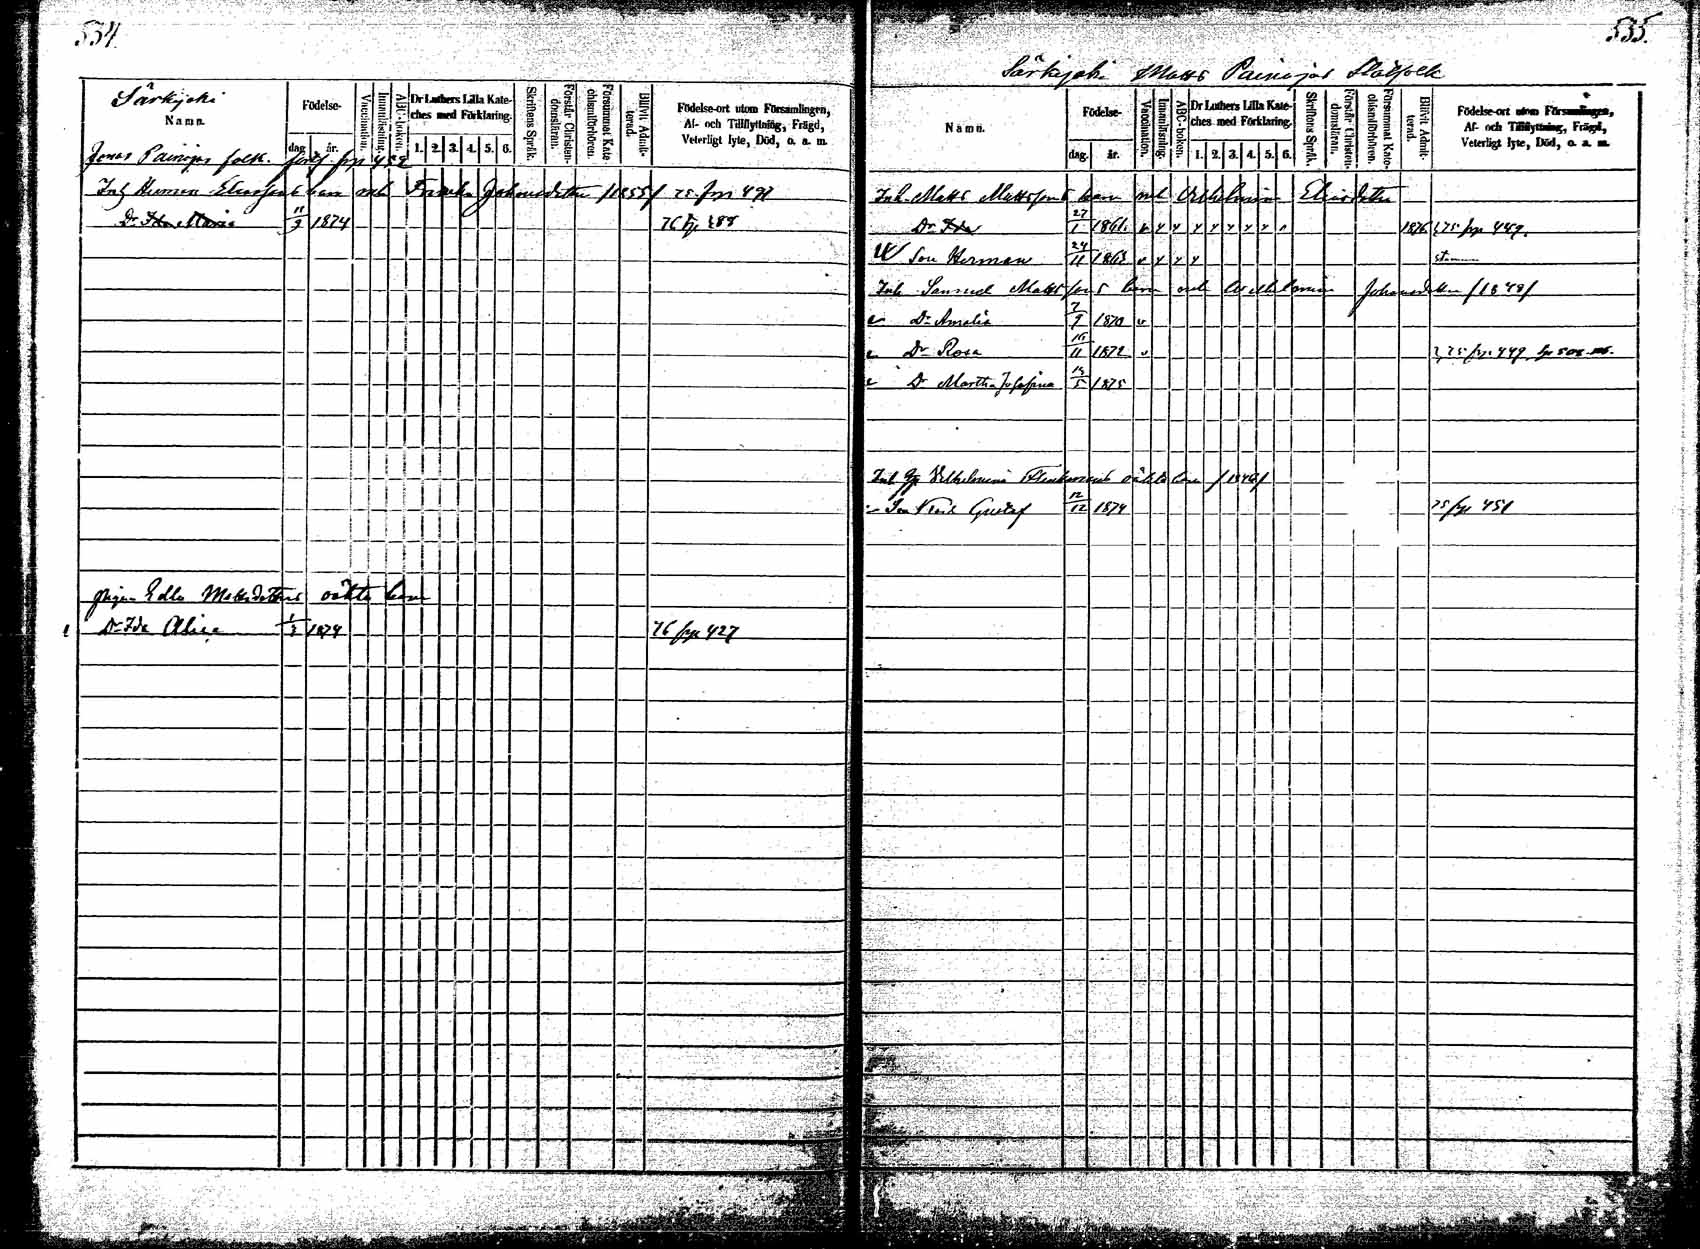 534.
Särkijoki
Namn.
Födelse-
dag. år.
Vaccination.
Innanläsning.
ABC-boken.
Dr Luthers Lilla Kate-
ches med Förklaring.
1. 2. 3. 4. 5. 6.
Skriftens Språk.
Förstår Christen-
domsläran.
Försummat Kate-
chismiförhören.
Blifvit Admit-
terad.
Födelse-ort utom Församlingen,
Af- och Tillflyttning, Frägd,
Veterligt lyte, Död, o. a. m.
Jonas Painojas folk. forts. fr. p. 452
Inh Herman Eliassons barn med Johansdotter /1855/ 75 fr p 471
Dr Ida Maria 11/3 1874 76 fr p 488
pigan Edla Mattsdotters oäkta barn
Dr Ida Alina 1/3 1874 76 fr p 427
535.
Särkijoki Matts Painojas Statfolk
Namn.
Födelse-
dag. år.
Vaccination.
Innanläsning.
ABC-boken.
Dr Luthers Lilla Kate-
ches med Förklaring.
1. 2. 3. 4. 5. 6.
Skriftens Språk.
Förstår Christen-
domsläran.
Försummat Kate-
chismiförhören.
Blifvit Admit-
terad.
Födelse-ort utom Församlingen,
Af- och Tillflyttning, Frägd,
Veterligt lyte, Död, o. a. m.
Inh. Matts Mattssons barn med Vilhelmina Eliasdotter
Dr Ida 27/1 1861 1876 75 fr p 449.
Son Herman 24/11 1863
Inh Samuel Mattssons barn med Vilhelmina Johansdotter /1848/
Dr Amalia 7/9 1870
Dr Rosa 16/11 1872 75 fr p 449
Dr Martha Josefina 13/5 1875
Inh Vilhelmina oäkta barn /1846/
Son Gustaf 12/12 1874 75 fr p 451